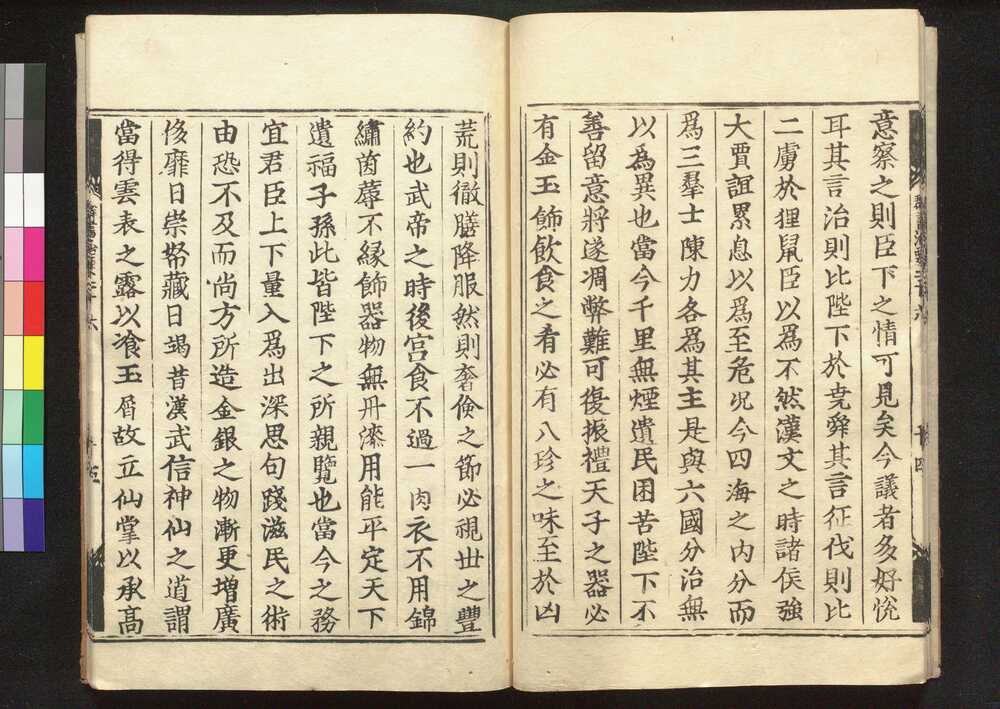 意察之則臣下之情可見矣今議者多好悅
耳其言治則比陛下於堯舜其言征伐則比
二虜於狸鼠臣以爲不然漢文之時諸侯強
大賈誼累息以爲至危况今四海之內分而
爲三羣士陳力各爲其主是與六國分治無
以爲異也當今千里無煙遺民困苦陛下不
善留意將遂凋弊難可復振禮天子之器必
有金玉飾飲食之肴必有八珍之味至於凶
荒則徹膳降服然則奢儉之節必視世之豐
約也武帝之時後宮食不過一肉衣不用錦
繡茵蓐不緣飾器物無丹漆用能平定天下
遺福子孫此皆陛下之所親覽也當今之務
宜君臣上下量入爲出深思句踐滋民之術
由恐不及而尚方所造金銀之物漸更增廣
侈靡日崇帑藏日竭昔漢武信神仙之道謂
當得雲表之露以飡玉屑故立仙掌以承高